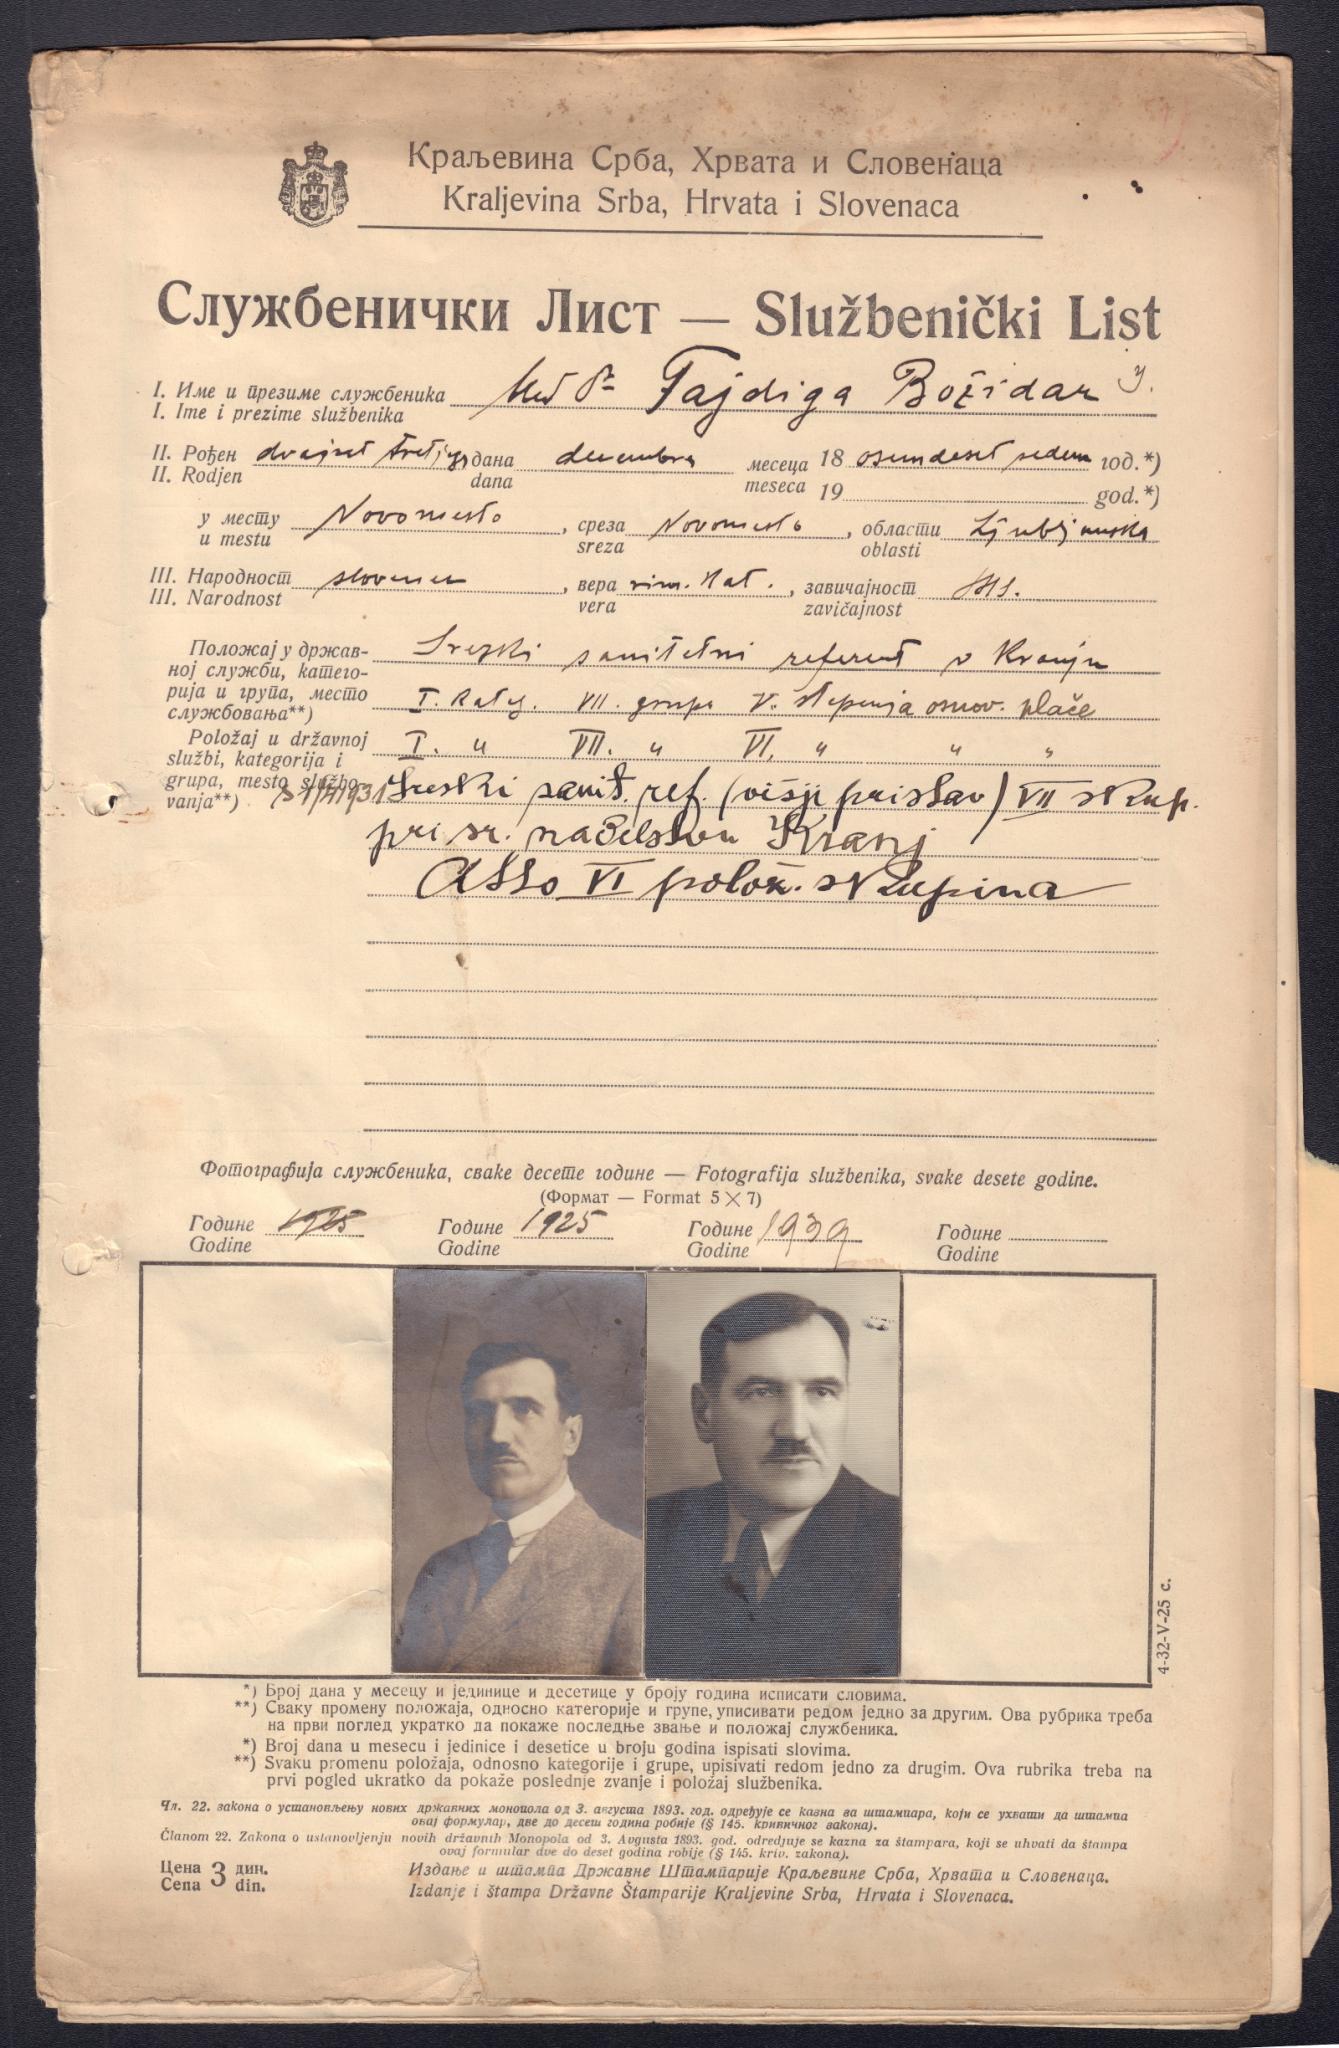 Краљевина Срба, Хрвата и Словенаца
Kraljevina Srba, Hrvata i Slovenaca
Службенички Лист — Službenički List
I. Име и презиме службеника
I. Ime i prezime službenika
Med Dr Fajdiga Božidar
II. Рођен
II. Rodjen
dvajset tretjega дана
dana
decembra месеца
meseca
18 osemdeset sedem год.*)
19 god.*)
у месту
u mestu
Novomesto , среза
sreza
Novomesto , области
oblasti
Ljubljanska
III. Народност
III. Narodnost
slovenec , вера
vera
rim. kat. , завичајност
zavičajnost
SHS.
Положај у држав-
ној служби, катего-
рија и група, место
службовања**)
Položaj u državnoj
službi, kategorija i
grupa, mesto službo-
vanja**)
Sreski sanitetni referent v Kranju
I. kateg. VII. grupa V. stepenja osnov. plače
I. " VII. " VI. " " "
1931 Sreski sanit. ref. (višji pristav) VII skup.
pri sr. načelstvu Kranj
VI polož. skupina
Фотографија службеника, сваке десете године — Fotografija službenika, svake desete godine.
(Формат — Format 5 × 7)
Године 1925 Године 1925 Године 1939 Године
Godine Godine Godine Godine
4-32-V-25 с.
*) Број дана у месецу и јединице и десетице у броју година исписати словима.
**) Сваку промену положаја, односно категорије и групе, уписивати редом једно за другим. Ова рубрика треба
на први поглед укратко да покаже последње звање и положај службеника.
*) Broj dana u mesecu i jedinice i desetice u broju godina ispisati slovima.
**) Svaku promenu položaja, odnosno kategorije i grupe, upisivati redom jedno za drugim. Ova rubrika treba na
prvi pogled ukratko da pokaže poslednje zvanje i položaj službenika.
Чл. 22. закона о установљењу нових државних монопола од 3. августа 1893. год. одређује се казна за штампара, који се ухвати да штампа
овај формулар, две до десет година робије (§ 145. кривичног закона).
Članom 22. Zakona o ustanovljenju novih državnih Monopola od 3. Avgusta 1893. god. odredjuje se kazna za štampara, koji se uhvati da štampa
ovaj formular dve do deset godina robije (§ 145. kriv. zakona).
Цена 3 дин.
Cena din.
Издање и штампа Државне Штампарије Краљевине Срба, Хрвата и Словенаца.
Izdanje i štampa Državne Štamparije Kraljevine Srba, Hrvata i Slovenaca.